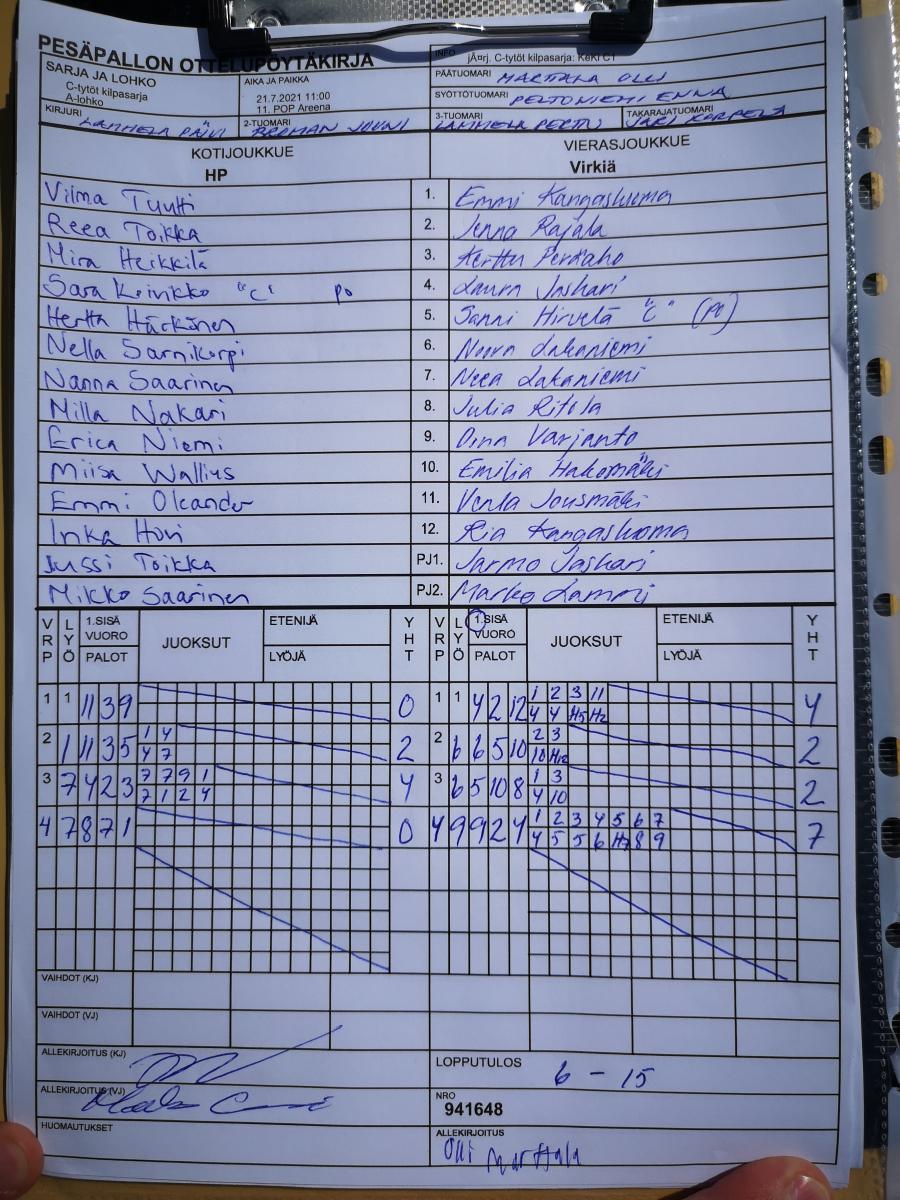 PESÄPALLON OTTELUPÖYTÄKIRJA
SARJA JA LOHKO
C-tytöt kilpasarja
A-lohko
AIKA JA PAIKKA
21.7.2021 11:00
11. POP Areena
INFO
jÄ¤rj. C-tytöt kilpasarja: KeKi C1
PÄÄTUOMARI MARTTALA OLLI
SYÖTTÖTUOMARI PELTONIEMI ENNA
KIRJURI LAMMELA PÄIVI
2-TUOMARI BROMAN JOUNI
3-TUOMARI LAMMELA PERTTU
TAKARAJATUOMARI JARI KORPELA
KOTIJOUKKUE
HP
VIERASJOUKKUE
Virkiä
Vilma Tuulti 1. Emmi Kangasluoma
Reea Toikka 2. Jenna Rajala
Mira Heikkilä 3. Kerttu Peräaho
Sara Koivikko "C" po 4. Laura Jashari
Hertta Härkönen 5. Sanni Hirvelä "C" (po)
Nella Sarnikorpi 6. Noora Lakaniemi
Nanna Saarinen 7. Neea Lakaniemi
Milla Nakari 8. Julia Ritola
Erica Niemi 9. Oona Varjanto
Miisa Wallius 10. Emilia Hakomäki
Emmi Oleander 11. Venla Jousmäki
Inka Hovi 12. Ria Kangasluoma
Jussi Toikka PJ1. Jarmo Jashari
Mikko Saarinen PJ2. Marko Lammi
VRP LYÖ 1.SISÄ VUORO PALOT JUOKSUT ETENIJÄ LYÖJÄ YHT
VRP LYÖ 1.SISÄ VUORO PALOT JUOKSUT ETENIJÄ LYÖJÄ YHT
1 1 11 3 9 0 1 1 4 2 12 1 2 3 11 4
4 4 H5 H2
2 1 11 3 5 1 4 2 2 6 6 5 10 2 3 2
4 7 10 H12
3 7 4 2 3 7 7 9 1 4 3 6 5 10 8 1 3 2
7 1 2 4 4 10
4 7 8 7 1 0 4 9 9 2 4 1 2 3 4 5 6 7 7
4 5 5 6 H7 8 9
VAIHDOT (KJ)
VAIHDOT (VJ)
ALLEKIRJOITUS (KJ)
LOPPUTULOS 6 - 15
ALLEKIRJOITUS (VJ)
NRO
941648
HUOMAUTUKSET
ALLEKIRJOITUS
Olli Marttala